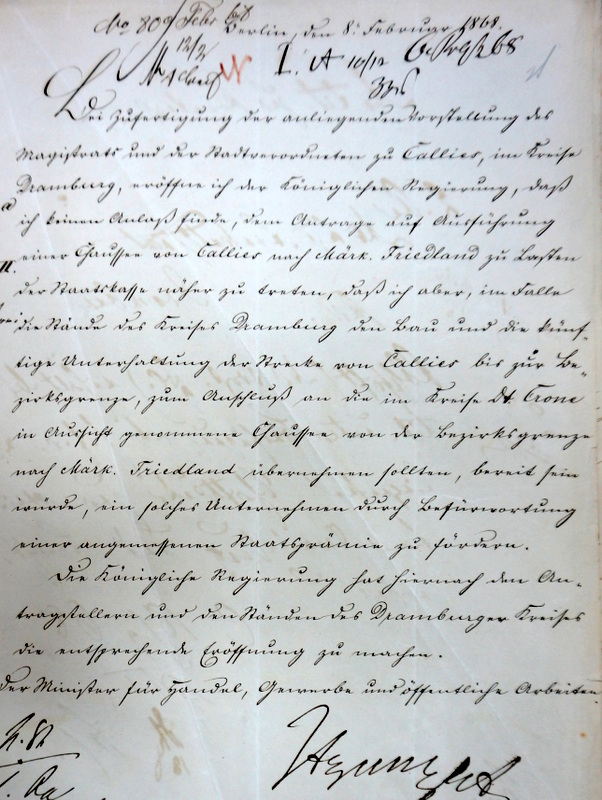 No 80 Febr
Berlin, den 8. Februar 1868.
12/2
I. A 10/12
Bei Zufertigung der anliegenden Vorstellung des
Magistrats und der Stadtverordneten zu Callies, im Kreise
Dramburg, eröffne ich der Königlichen Regierung, daß
ich keinen Anlaß finde, dem Antrage auf Ausführung
einer Chaussee von Callies nach Märk. Friedland zu Lasten
der Staatskasse näher zu treten, daß ich aber, im Falle
die Stände des Kreises Dramburg den Bau und die künf-
tige Unterhaltung der Strecke von Callies bis zur Be-
zirksgrenze, zum Anschluß an die im Kreise Dt. Crone
in Aussicht genommene Chaussee von der Bezirksgrenze
nach Märk. Friedland übernehmen sollten, bereit sein
würde, ein solches Unternehmen durch Befürwortung
einer angemessenen Staatsprämie zu fördern.
Die Königliche Regierung hat hiernach den An-
tragstellern und den Ständen des Dramburger Kreises
die entsprechende Eröffnung zu machen.
Der Minister für Handel, Gewerbe und öffentliche Arbeiten.